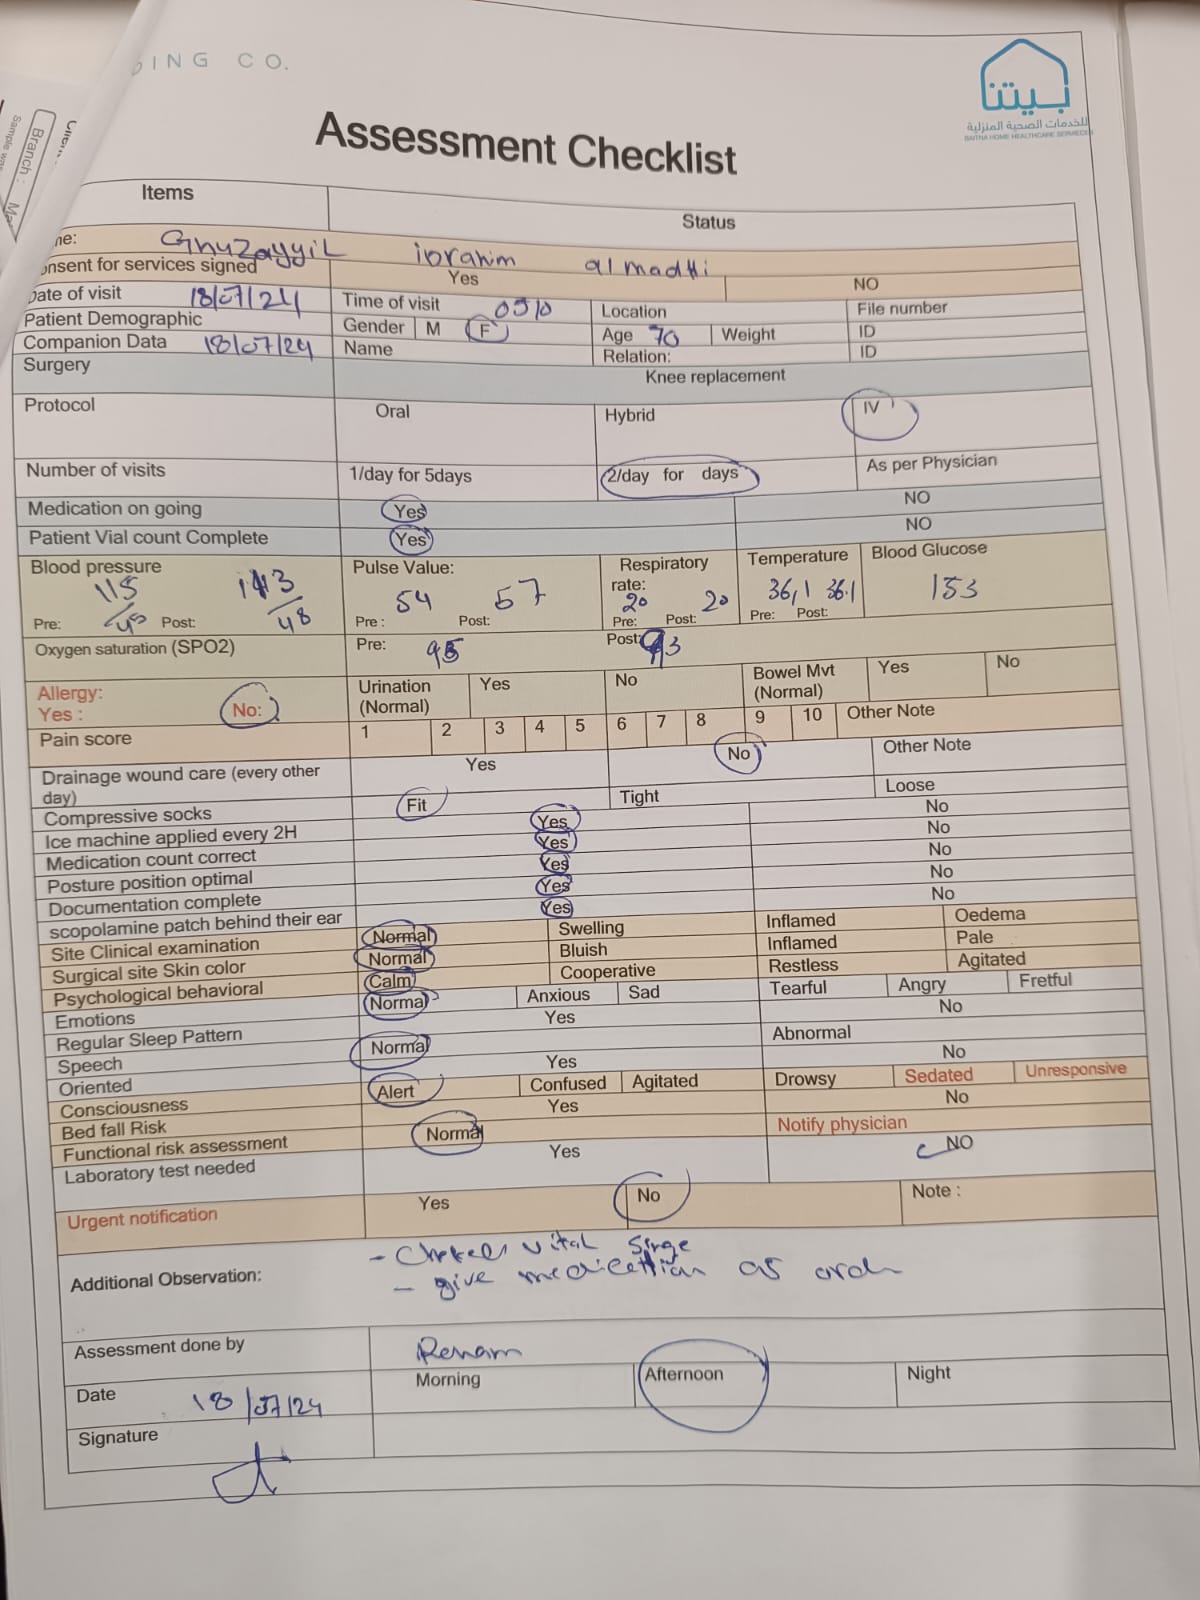 DING CO.
بيتنا
للخدمات الصحية المنزلية
BAITNA HOME HEALTHCARE SERVICES
Branch :
Assessment Checklist
Items Status
me: Ghuzayyil ibrahim almadhi
onsent for services signed Yes NO
Date of visit 18/07/24 Time of visit 0510 Location File number
Patient Demographic Gender M F Age 70 Weight ID
Companion Data 18/07/24 Name Relation: ID
Surgery Knee replacement
Protocol Oral Hybrid IV
Number of visits 1/day for 5days 2/day for days As per Physician
Medication on going Yes NO
Patient Vial count Complete Yes NO
Blood pressure Pulse Value: Respiratory rate: Temperature Blood Glucose
Pre: 115/ Post: /48 Pre : 54 Post: 57 Pre: 20 Post: 20 Pre: 36,1 Post: 36.1 153
Oxygen saturation (SPO2) Pre: Post: 93
Allergy: Urination (Normal) Yes No Bowel Mvt (Normal) Yes No
Yes : No:
Pain score 1 2 3 4 5 6 7 8 9 10 Other Note
Drainage wound care (every other day) Yes No Other Note
Compressive socks Fit Tight Loose
Ice machine applied every 2H Yes No
Medication count correct Yes No
Posture position optimal Yes No
Documentation complete Yes No
scopolamine patch behind their ear Yes No
Site Clinical examination Normal Swelling Inflamed Oedema
Surgical site Skin color Normal Bluish Inflamed Pale
Psychological behavioral Calm Cooperative Restless Agitated
Emotions Normal Anxious Sad Tearful Angry Fretful
Regular Sleep Pattern Yes No
Speech Normal Abnormal
Oriented Yes No
Consciousness Alert Confused Agitated Drowsy Sedated Unresponsive
Bed fall Risk Yes No
Functional risk assessment Normal Notify physician
Laboratory test needed Yes NO
Urgent notification Yes No Note :
Additional Observation:
- vital
- give as
Assessment done by Renam
Date 18/07/24 Morning Afternoon Night
Signature